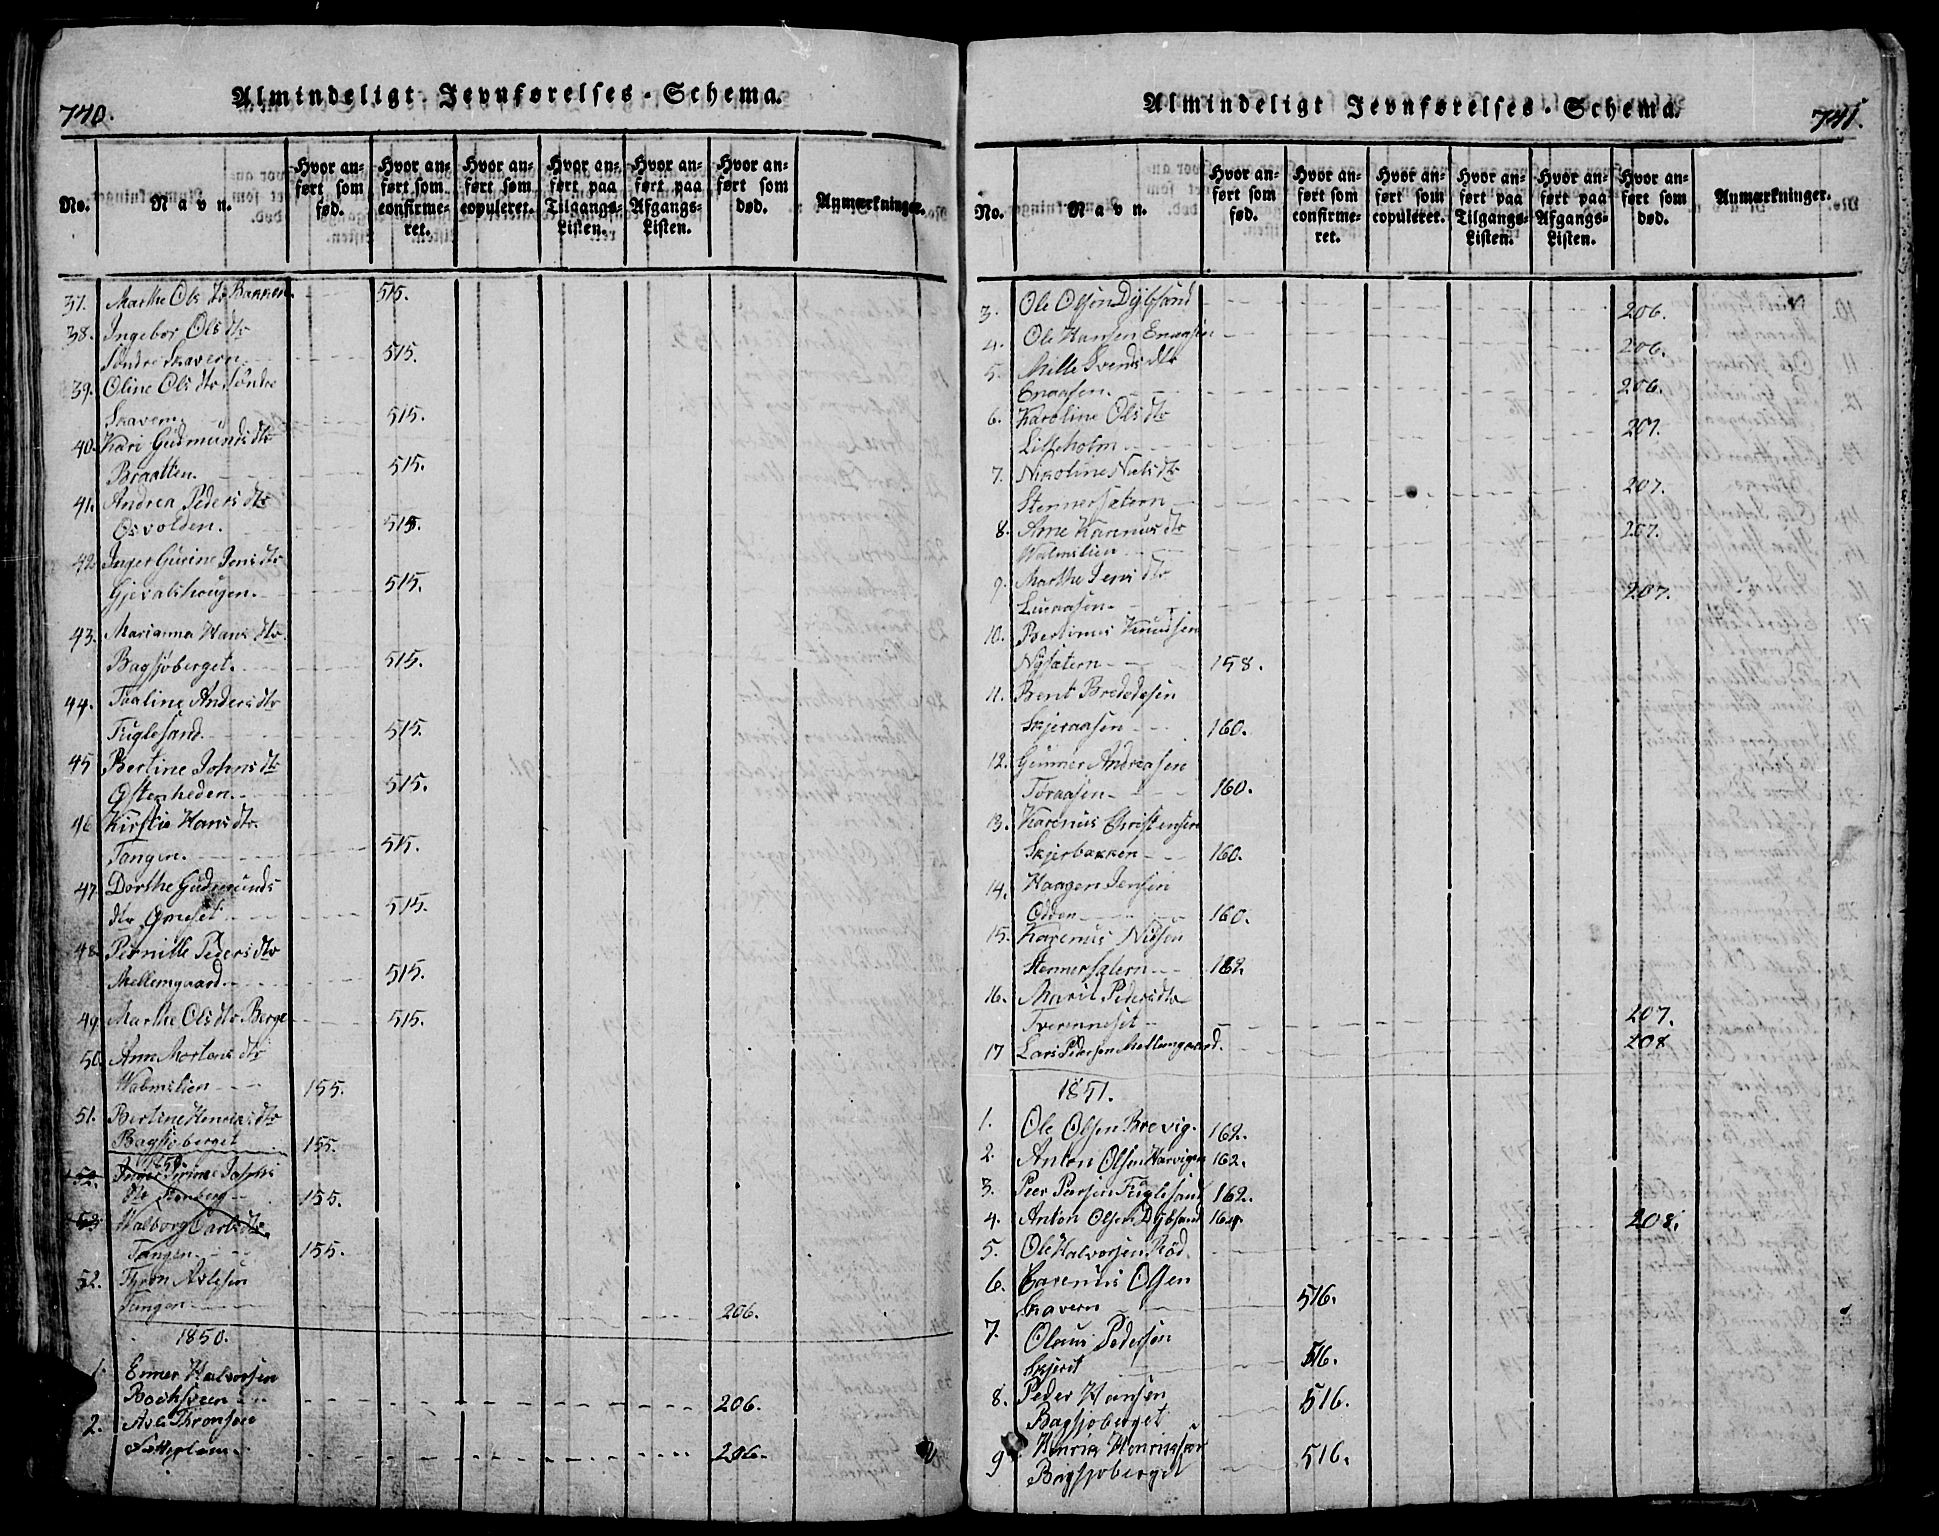 740.
Almindeligt Jevnførelses-Schema.
No.
Navn.
Hvor anført som fød.
Hvor anført som confirmeret.
Hvor anført som copuleret.
Hvor anført paa Tilgangs-Listen.
Hvor anført paa Afgangs-Listen.
Hvor anført som død.
Anmærkninger.
37. Marthe Ols dtr Bakken 515.
38. Ingebor Ols dtr
Søndre skavern. 515.
39. Oline Ols dtr Søndre
Skavern. 515.
40. Kari Gudmunds dtr
Braatten. 515.
41. Andrea Peders dtr
Osvolden. 515.
42. Inger Gurine Jens dtr
Gjevalshougen. 515.
43. Marianna Hans dtr
Bagsjøberget. 515.
44. Paaline Anders dtr
Fuglesand. 515.
45 Bertine Johns dtr
Østenheden. 515.
46 Kirstie Hans dtr.
Tangen. 515.
47. Dorthe Gudmunds
dtr Ørneset 515.
48. Pernille Peders dtr
Mellemgaard. 515.
49. Marthe Ols dtr Berge 515.
50. Anne Mortens dtr
Walmslien 155.
51. Bertine Henriks dtr
Bagsjøberget 155.
52. Inger Josephs
dtr 155.
53 Walborg Carls dtr
Tangen. 155.
52. Thron Axlesen
Tangen 206.
1850.
1. Enner Halvorsen
206.
2. Axle Thronsen
206.
Almindeligt Jevnførelses-Schema.
741.
No.
Navn.
Hvor anført som fød.
Hvor anført som confirmeret.
Hvor anført som copuleret.
Hvor anført paa Tilgangs-Listen.
Hvor anført paa Afgangs-Listen.
Hvor anført som død.
Anmærkninger.
3. Ole Olsen Dybsand 206.
4. Ole Hansen Enaasen 206.
5. Mille Svends dtr
Enaasen. 206.
6. Karoline Ols dtr
Lilleholm 207.
7. Nikoline Niels dtr
Stennersætern 207.
8. Arne Karenus dtr
Walmslien 207.
9. Marthe Jens dtr
207.
10. Bertinus Knudsen
Nysætern 158.
11. Bent Bredesen
Skjeraasen 160.
12. Gunner Andreasen
Toraasen 160.
13. Karenus Christensen
Skjerbakken 160.
14. Haagen Jensen
Odden 160.
15. Karenus Nilsen
Stennersætern 162
16. Marit Peders dtr
Tverenneset 207.
17 Lars Pedersen Mellemgaard. 208
1851.
1. Ole Olsen Brevig. 162.
2. Anton Olsen Harvigen 162.
3. Peer Peersen Fuglesand 162.
4. Anton Olsen Dybsand 164.
5. Ole Halvorsen Rød. 208.
6. Carenus Olsen
Skavern 516.
7. Olaus Pedersen
516.
8. Peder Hansen
Bagsjøberget 516.
9 Henrik Henriksen
Bagsjøberget 516.